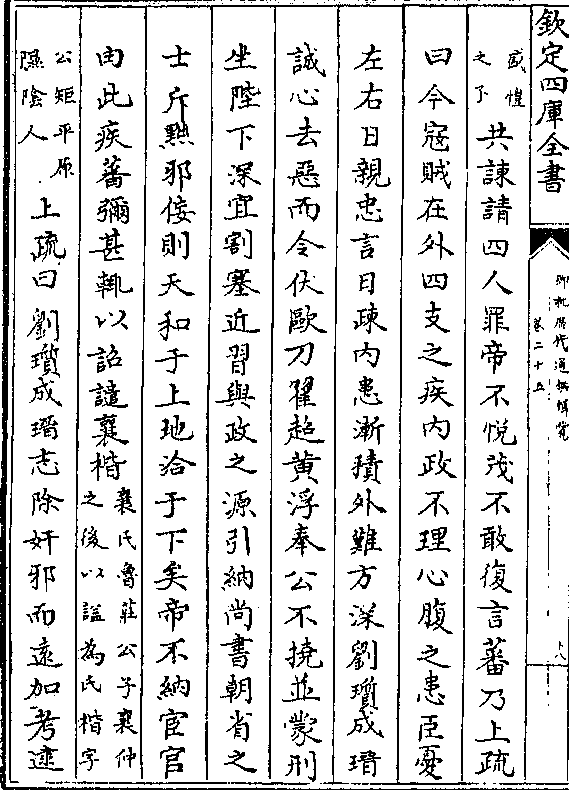 欽定四庫全書
御批歷代通鑑輯覽
卷二十五
十八
戚愷
之下
共諫請四人罪帝不悅茂不敢復言蕃乃上疏
曰今寇賊在外四支之疾內政不理心腹之患臣憂
左右日親忠言日疎內患漸積外難方深劉瓆成瑨
誠心去惡而令伏歐刀翟超黄浮奉公不撓並蒙刑
坐陛下深宜割塞近習與政之源引納尚書朝省之
士斥黜邪佞則天和于上地洽于下矣帝不納宦官
由此疾蕃彌甚輒以詔譴襄楷
襄氏魯莊公子襄仲
之後以諡為氏楷字
公矩平原
隰陰人
上疏曰劉瓆成瑨志除奸邪而遠加考逮